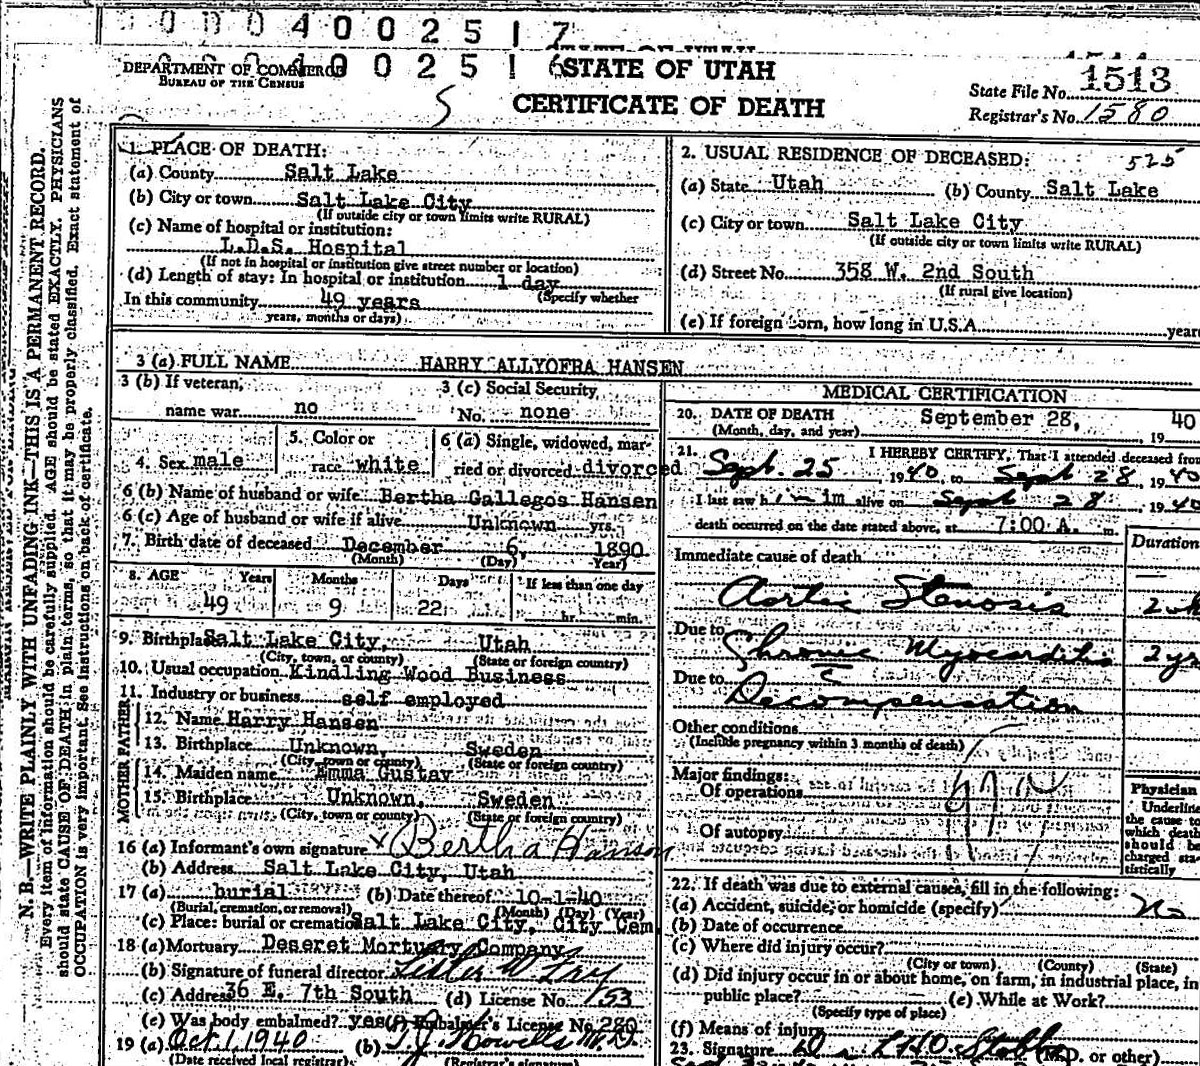 0 0 0 4 0 0 2 5 1 7
STATE OF UTAH
0 0 2 5 1 6
DEPARTMENT OF COMMERCE
BUREAU OF THE CENSUS
STATE OF UTAH
CERTIFICATE OF DEATH
State File No. 1513
Registrar's No. 1580
N. B.—WRITE PLAINLY WITH UNFADING INK—THIS IS A PERMANENT RECORD.
Every item of information should be carefully supplied. AGE should be stated EXACTLY. PHYSICIANS
should state CAUSE OF DEATH in plain terms, so that it may be properly classified. Exact statement of
OCCUPATION is very important. See instructions on back of certificate.
1. PLACE OF DEATH:
(a) County Salt Lake
(b) City or town Salt Lake City
(If outside city or town limits write RURAL)
(c) Name of hospital or institution:
L.D.S. Hospital
(If not in hospital or institution give street number or location)
(d) Length of stay: In hospital or institution 1 day
(Specify whether
In this community 49 years
years, months or days)
2. USUAL RESIDENCE OF DECEASED: 525
(a) State Utah (b) County Salt Lake
(c) City or town Salt Lake City
(If outside city or town limits write RURAL)
(d) Street No. 358 W. 2nd South
(If rural give location)
(e) If foreign born, how long in U.S.A. year
3 (a) FULL NAME HARRY ALLYOFRA HANSEN
3 (b) If veteran, 3 (c) Social Security
name war no No. none
4. Sex male 5. Color or race white 6 (a) Single, widowed, mar-
ried or divorced divorced
6 (b) Name of husband or wife Bertha Gallegos Hansen
6 (c) Age of husband or wife if alive Unknown yrs.
7. Birth date of deceased December 6, 1890
(Month) (Day) Year)
8. AGE Years Months Days If less than one day
49 9 22 hr. min.
9. Birthplace Salt Lake City, Utah
(City, town, or county) (State or foreign country)
10. Usual occupation Kindling Wood Business
11. Industry or business self employed
FATHER
12. Name Harry Hansen
13. Birthplace Unknown, Sweden
(City, town or county) (State or foreign country)
MOTHER
14. Maiden name Emma Gustav
15. Birthplace Unknown, Sweden
(City, town or county) (State or foreign country)
16 (a) Informant's own signature x Bertha Hanson
(b) Address Salt Lake City, Utah
17 (a) burial (b) Date thereof 10-1-40
(Burial, cremation, or removal) (Month) (Day) (Year)
(c) Place: burial or cremation Salt Lake City, City Cem.
18 (a) Mortuary Deseret Mortuary Company
(b) Signature of funeral director
(c) Address 36 E. 7th South (d) License No. 153
(e) Was body embalmed? yes (f) Embalmer's License No. 280
19 (a) Oct 1, 1940 (b) T. J. Howells M.D.
(Date received local registrar) (Registrar's signature)
MEDICAL CERTIFICATION
20. DATE OF DEATH September 28, 19 40
(Month, day, and year)
21. I HEREBY CERTIFY, That I attended deceased from
Sept. 25 1940, to Sept 28, 1940
I last saw h im alive on Sept 28, 1940
death occurred on the date stated above, at 7:00 A. m.
Duration
Immediate cause of death
Aortic Stenosis
Due to
Chronic Myocarditis 2 yrs
Due to
Decompensation
Other conditions
(Include pregnancy within 3 months of death)
Major findings:
Of operations
Of autopsy
Physician
Underline
the cause to
which death
should be
charged sta-
tistically
22. If death was due to external causes, fill in the following:
(a) Accident, suicide, or homicide (specify) no
(b) Date of occurrence
(c) Where did injury occur?
(City or town) (County) (State)
(d) Did injury occur in or about home, on farm, in industrial place, in
public place? (e) While at Work?
(Specify type of place)
(f) Means of injury
23. Signature (M.D. or other)